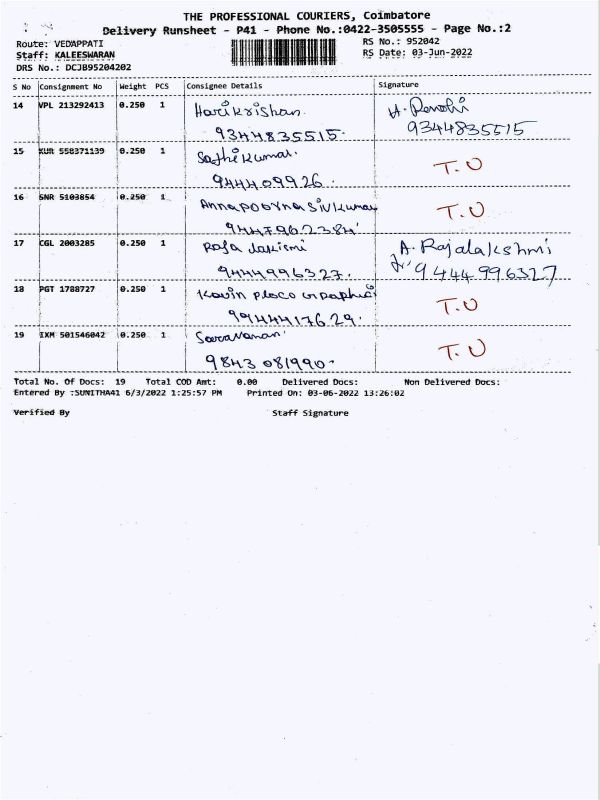 THE PROFESSIONAL COURIERS, Coimbatore
Delivery Runsheet - P41 - Phone No.:0422-3505555 - Page No.:2
Route: VEDAPPATI RS No.: 952042
Staff: KALEESWARAN RS Date: 03-Jun-2022
DRS No.: DCJB95204202
S No Consignment No Weight PCS Consignee Details Signature
14 VPL 213292413 0.250 1 Harikrishan. H.
9344835515. 9344835515
15 KUR 558371139 0.250 1 Sathikumar. T.U
944409926.
16 SNR 5103854 0.250 1 Annapoorna Sivkumar T.U
9447962384.
17 CGL 2003285 0.250 1 Raja A. Rajalakshmi
9444996327. 9444996327
18 PGT 1788727 0.250 1 Kavin T.U
19 IXM 501546042 0.250 1 Saravanan. T.U
9843 081990.
Total No. Of Docs: 19 Total COD Amt: 0.00 Delivered Docs: Non Delivered Docs:
Entered By :SUNITHA41 6/3/2022 1:25:57 PM Printed On: 03-06-2022 13:26:02
Verified By Staff Signature